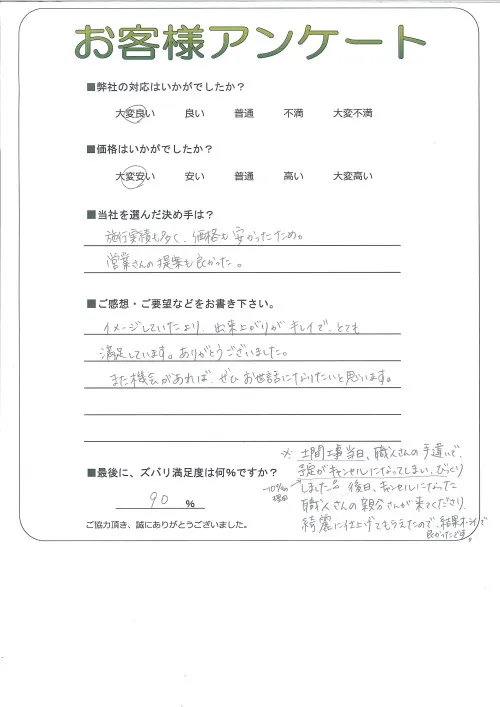 お客様アンケート
■弊社の対応はいかがでしたか？
大変良い 良い 普通 不満 大変不満
■価格はいかがでしたか？
大変安い 安い 普通 高い 大変高い
■当社を選んだ決め手は？
施行実績も多く、価格も安かったため。
営業さんの提案も良かった。
■ご感想・ご要望などをお書き下さい。
イメージしていたより、出来上がりがキレイで、とても
満足しています。ありがとうございました。
また機会があれば、ぜひお世話になりたいと思います。
■最後に、ズバリ満足度は何%ですか？
90 %
-10%の理由
※土間工事当日、職人さんの手違いで、
予定がキャンセルになってしまい、びっくり
しました。後日、キャンセルになった
職人さんの親分さんが来てくださり、
綺麗に仕上げてもらえたので、結果オーライで
良かったです。
ご協力頂き、誠にありがとうございました。